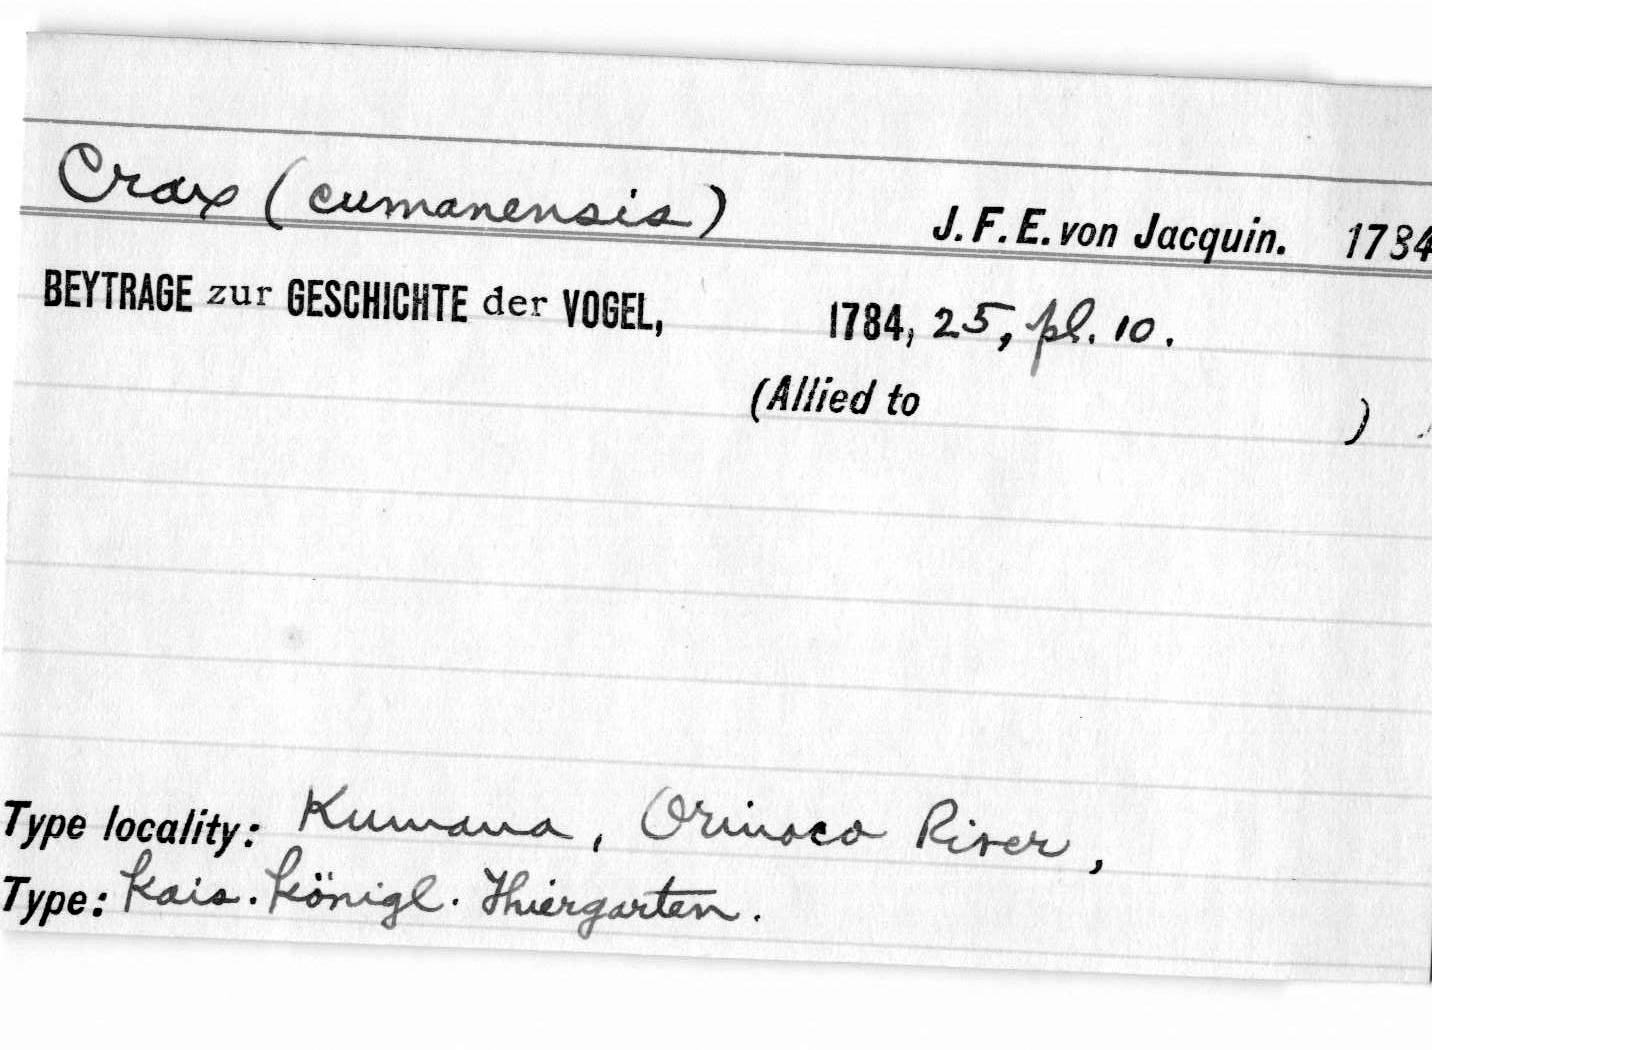 Crax (cumanensis) J. F. E. von Jacquin. 1784
BEYTRAGE zur GESCHICHTE der VOGEL, 1784, 25, pl. 10.
(Allied to )
Type locality: Kumana, Orinoco River,
Type: Kais. Königl. Thiergarten.